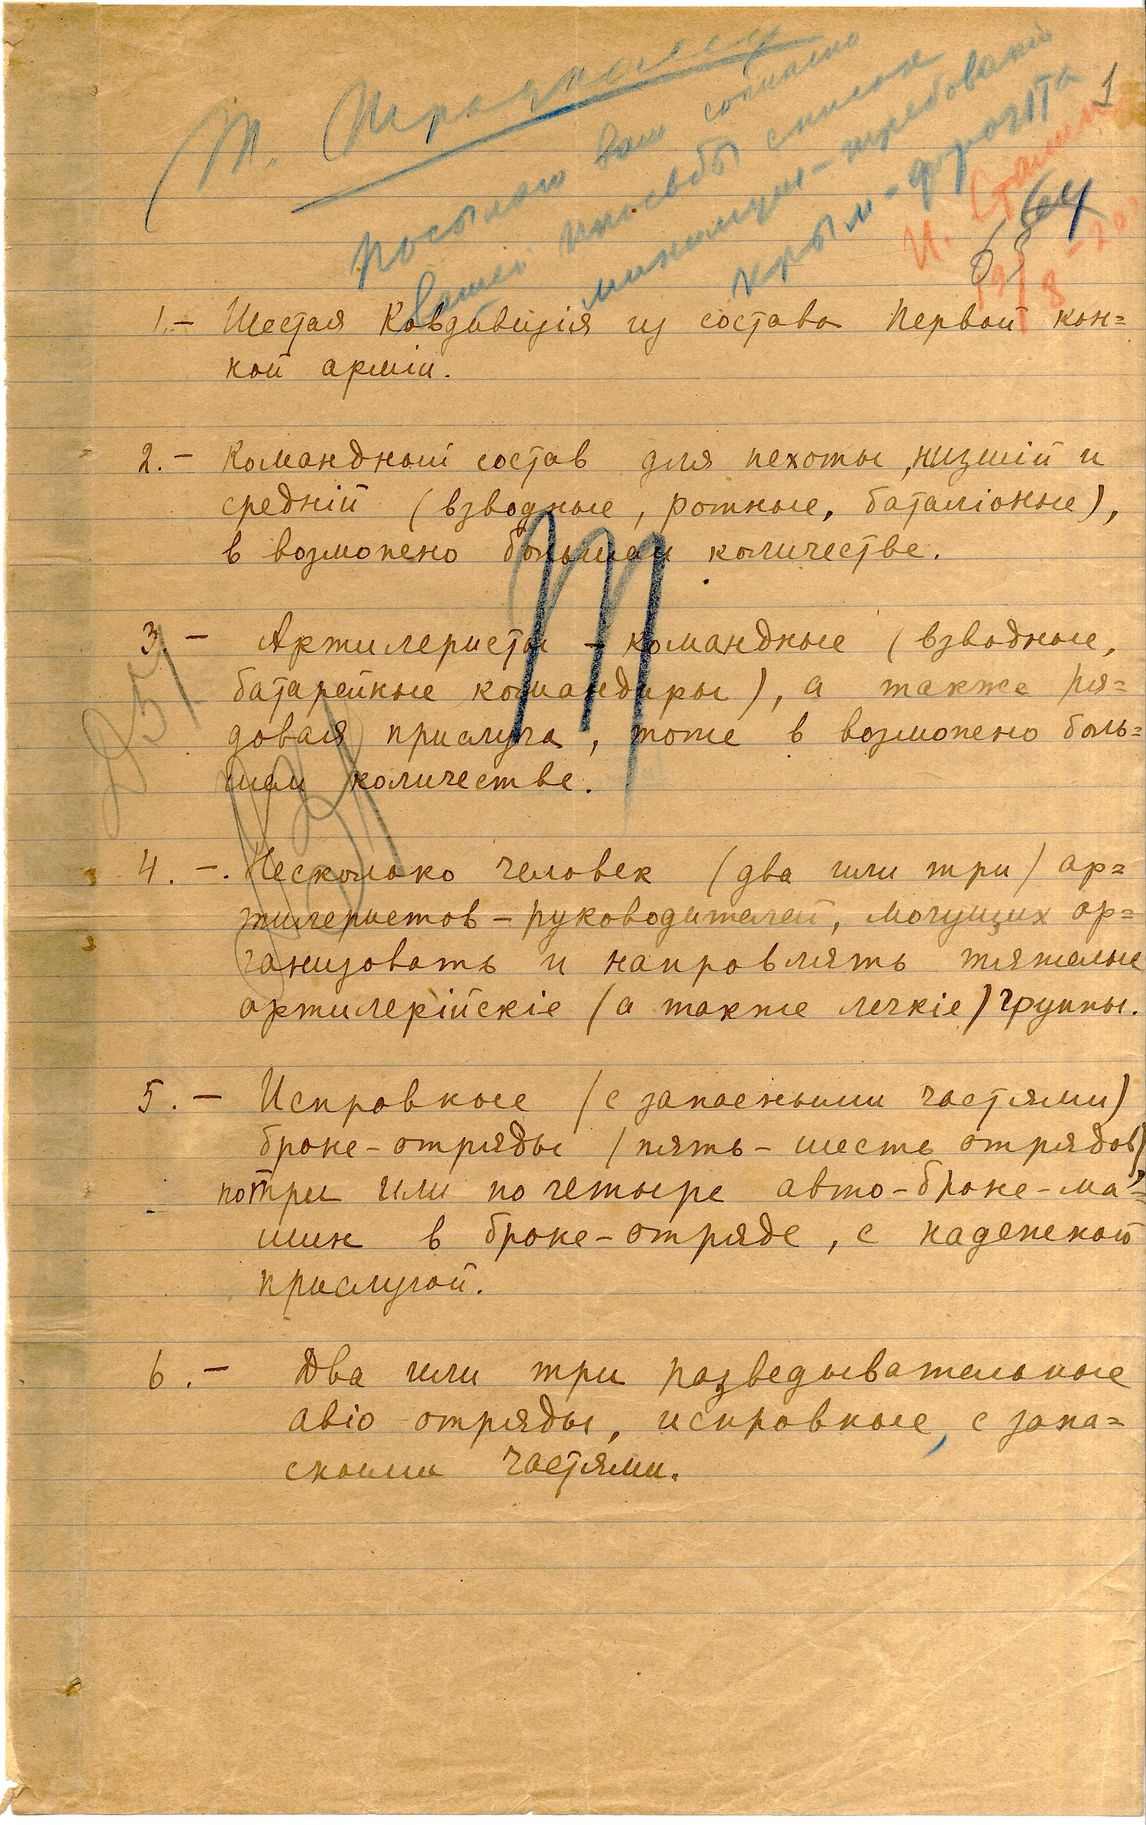 1
Т. Троцкому
Посылаю вам согласно
вашей просьбы список
минимум-требований
крым-фронта.
И. Сталин
19/8-20
64
1.- Шестая Кавдивизія из состава Первой кон=
ной арміи.
2.- Командный состав для пехоты, низшій и
средній (взводные, ротные, баталіоные),
в возможено большем количестве.
3.- Артилеристы - командные (взводные,
батарейные командиры), а также ря=
довая прислуга, тоже в возможено боль=
шем количестве.
4.-. Несколько человек (два или три) ар=
тилеристов - руководителей, могущих ор=
ганизовать и направлять тяжелые
артилерійскіе (а также легкіе) группы.
5.- Исправные (с запасными частями)
броне-отряды (пять - шесть отрядов),
по три или по четыре авто-броне-ма=
шин в броне-отряде, с надежной
прислугой.
6.- Два или три разведывательные
авіо отряды, исправные, с запа=
сными частями.